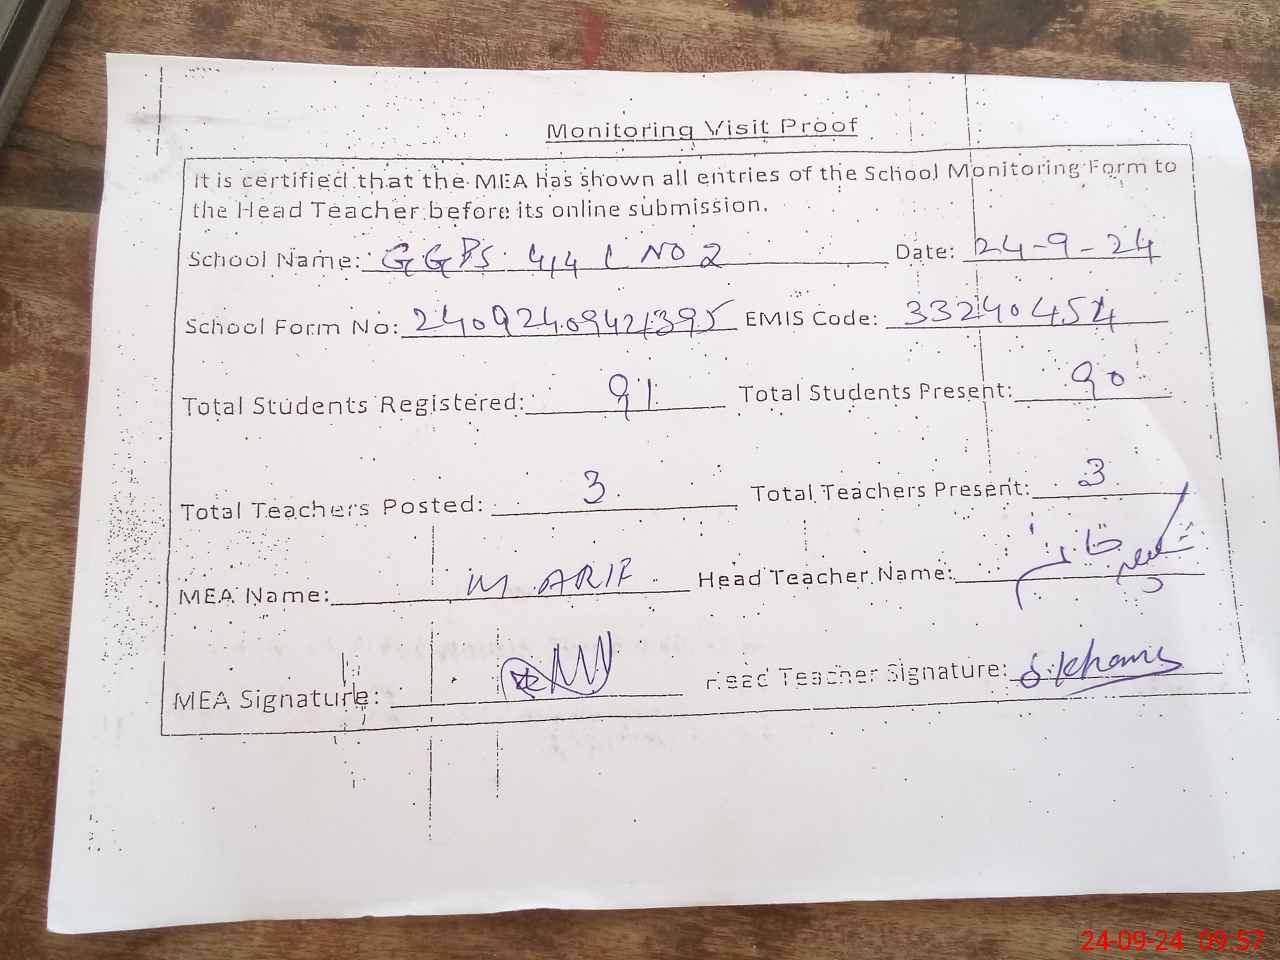 Monitoring Visit Proof
It is certified that the MEA has shown all entries of the School Monitoring Form to
the Head Teacher before its online submission.
School Name: GGPS 4,4 L NO 2 Date: 24-9-24
School Form No: EMIS Code: 33240454
Total Students Registered: 91 Total Students Present: 90
Total Teachers Posted: 3 Total Teachers Present: 3
MEA Name: M. ARIF Head Teacher Name:
MEA Signature: Head Teacher Signature:
24-09-24 09:57